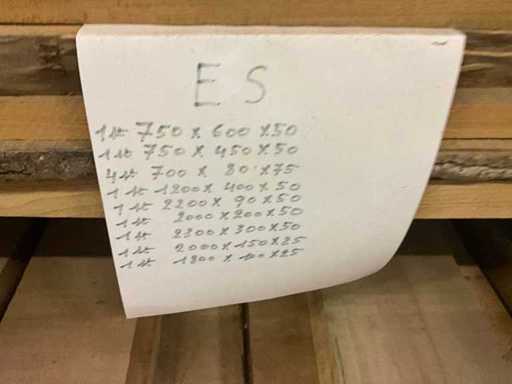 E S
1 st 750 x 600 x 50
1 st 750 x 450 x 50
4 st 700 x 80 x 75
1 st 1200 x 400 x 50
1 st 2200 x 90 x 50
1 st 2000 x 200 x 50
1 st 2300 x 300 x 50
1 st 2000 x 150 x 25
1 st 1800 x 100 x 25